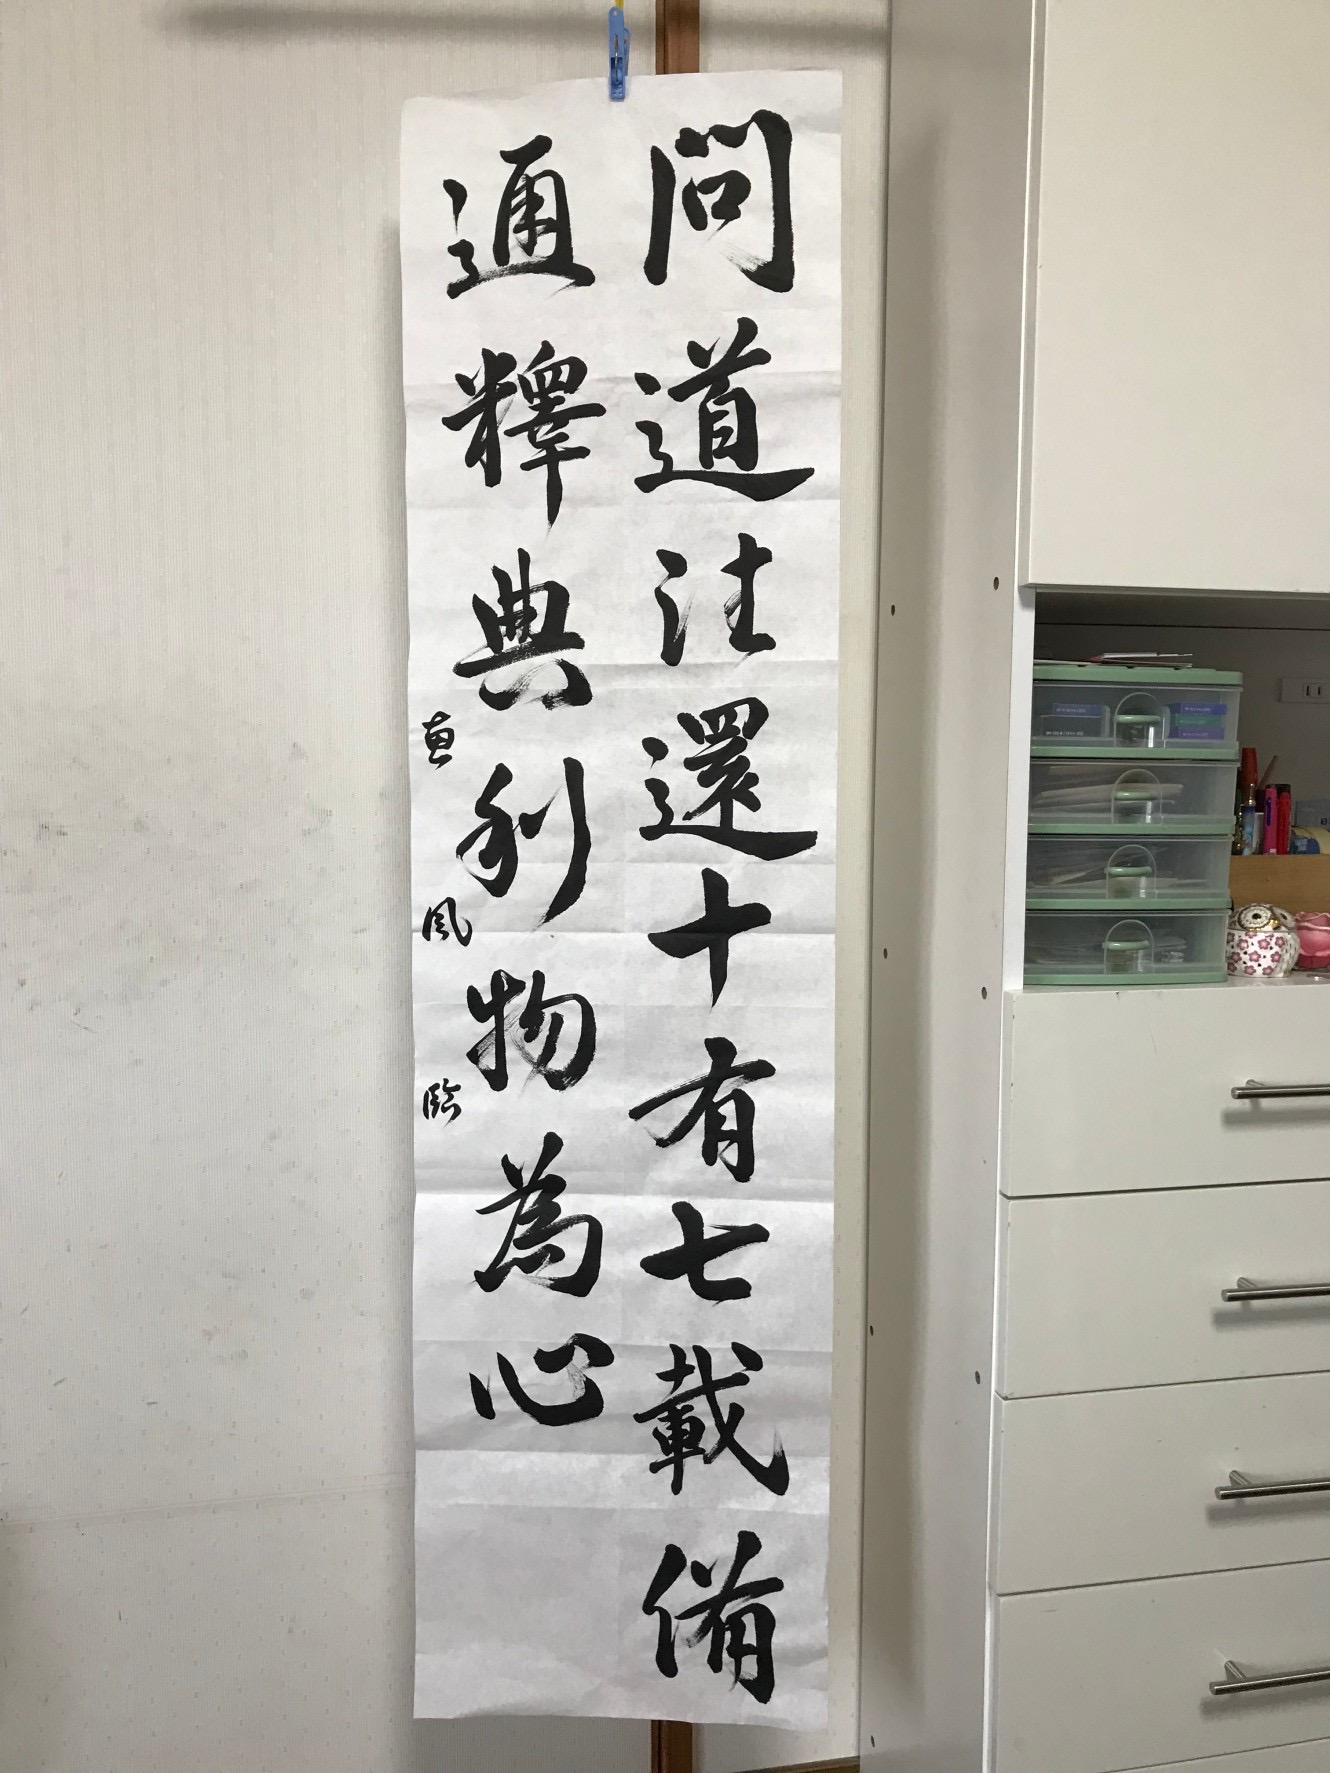 問道往還十有七載備
通釋典利物為心
恵風臨